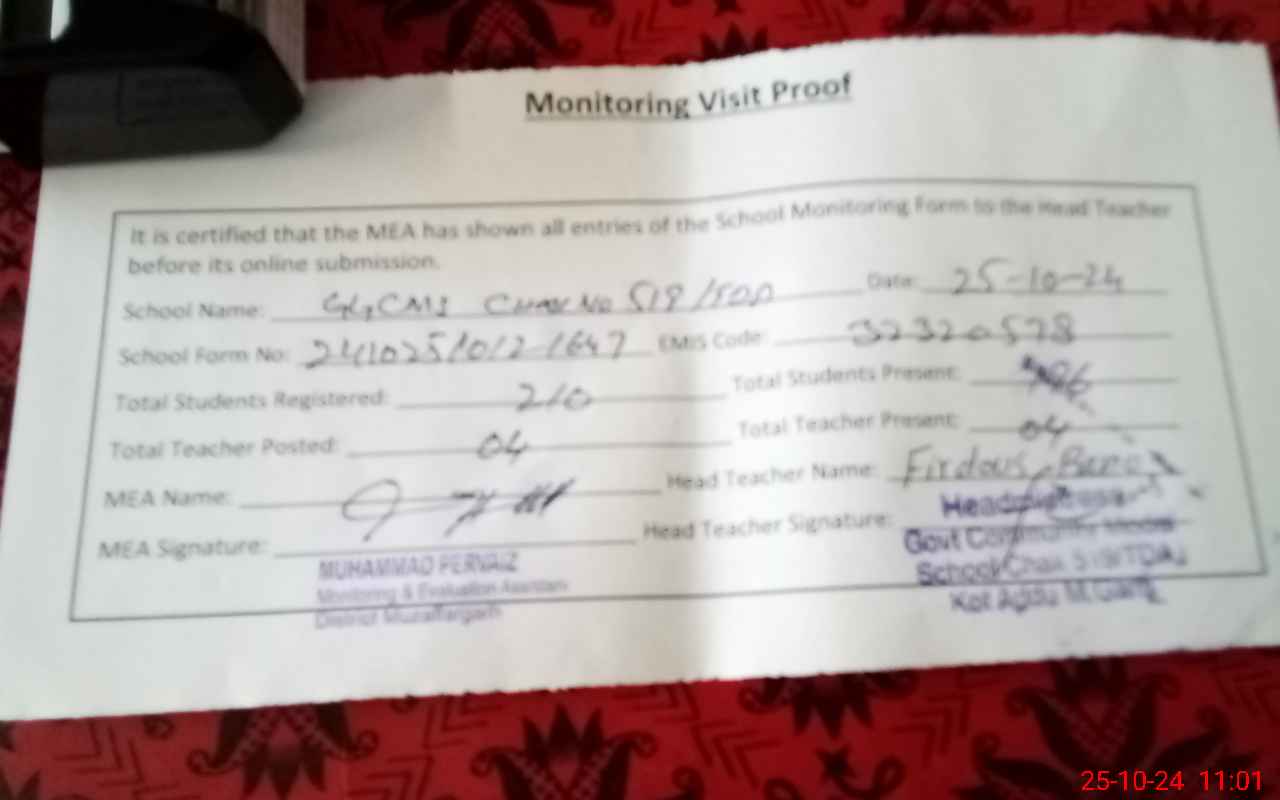 Monitoring Visit Proof
It is certified that the MEA has shown all entries of the School Monitoring Form to the Head Teacher
before its online submission.
School Name: Chak No 519/TDA Date: 25-10-24
School Form No: EMIS Code: 32320578
Total Students Registered: 210 Total Students Present:
Total Teacher Posted: 04 Total Teacher Present: 04
MEA Name: Head Teacher Name: Firdous Bano
MEA Signature: Head Teacher Signature:
MUHAMMAD PERVAIZ
Monitoring & Evaluation Assistant
District Muzaffargarh
Headmistress
Govt Community Model
School Chak 519/TDA
Kot Addu M.Garh
25-10-24 11:01